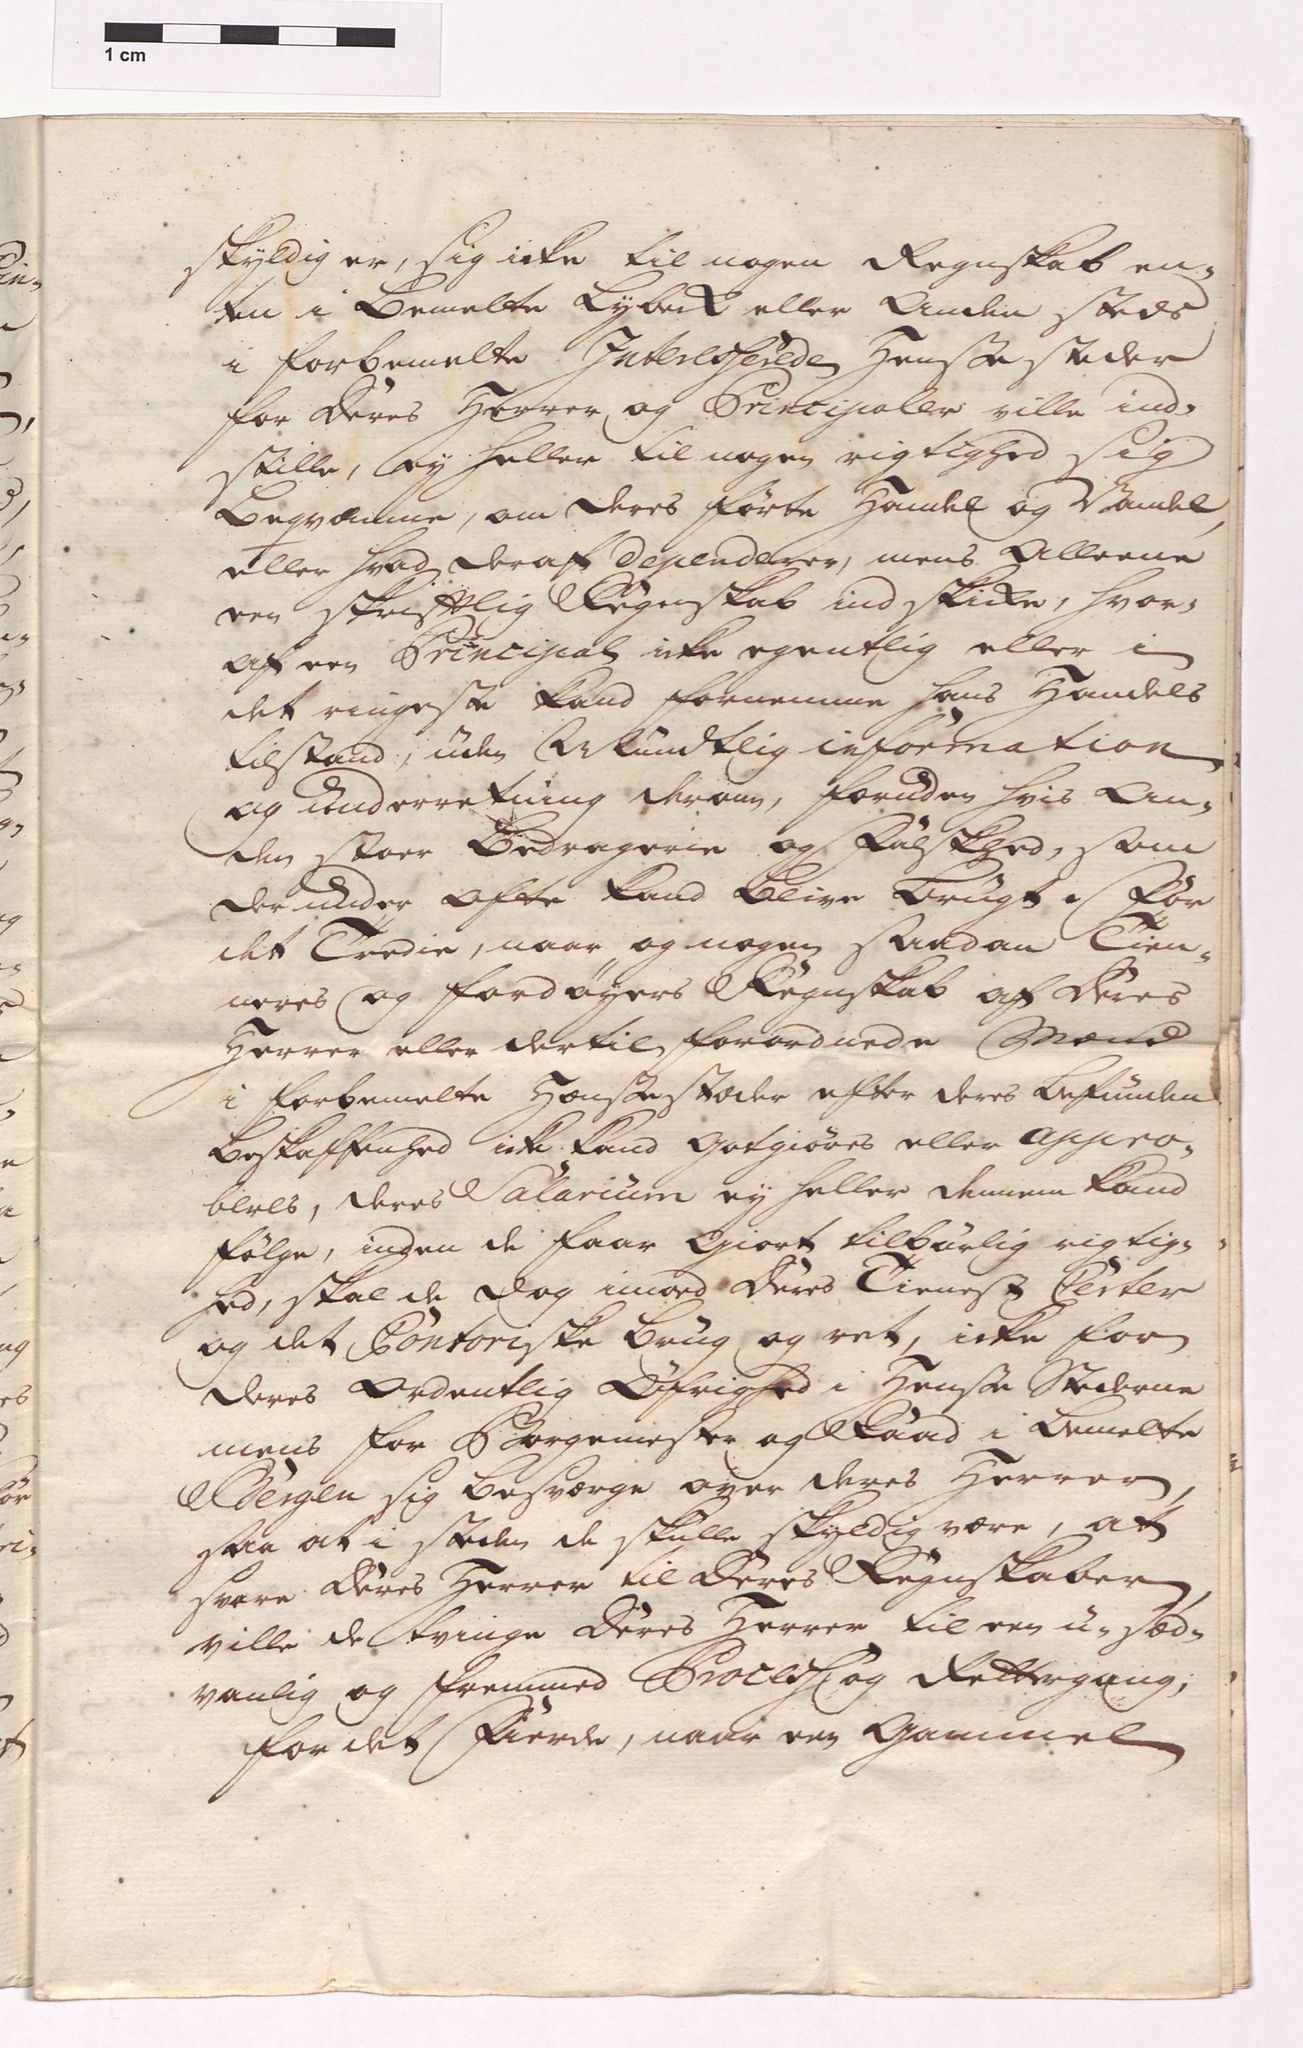 1 cm
skyldig er, sig icke til nogen Regnskab en-
ten i bemelte Lybeck eller Anden steds
i forbemelte Interesserede Hensesteder
for deres Herrer og Principaler ville ind-
stille, ey heller til nogen rigtighed sig
beqvæmme, om deres førte Handel og Wandel,
eller hvad deraf dependerer, mens Alleene
een skriftlig Regnskab indskicke, hvor-
af een Principal icke egentlig eller i
det ringeste kand fornemme hans Handels
tilstand, uden Mundtlig information
og underretning derom, foruden hvis An-
den stoer Bedragerie og Falskhed, som
derunder ofte kand blive brugt. For
det Tredie, naar og nogen saadan Tien-
neres og fordøyers Regnskab af deres
Herrer eller dertil forordnede Mænd
i forbemelte Hensestæder efter deres befunden
beskaffenhed icke kand gotgiøres eller appro-
beres, deres Salarium ey heller dennem kand
følge, inden de faar giort tilbørlig rigtig-
hed, skal de dog imod deres Tienest Certer
og det Contoriske brug og ret, icke for
deres ordentlig Øfrighed i Hense Stederne
mens for Borgemester og Raad i bemelte
Bergen sig besværge over deres Herrer,
saa at i steden de skulle skyldig være, at
svare deres Herrer til deres Regnskaber,
ville de tvinge deres Herrer til een u-sæd-
vanlig og fremmed Process og Rettergang;
for det Fierde, naar een Gammel